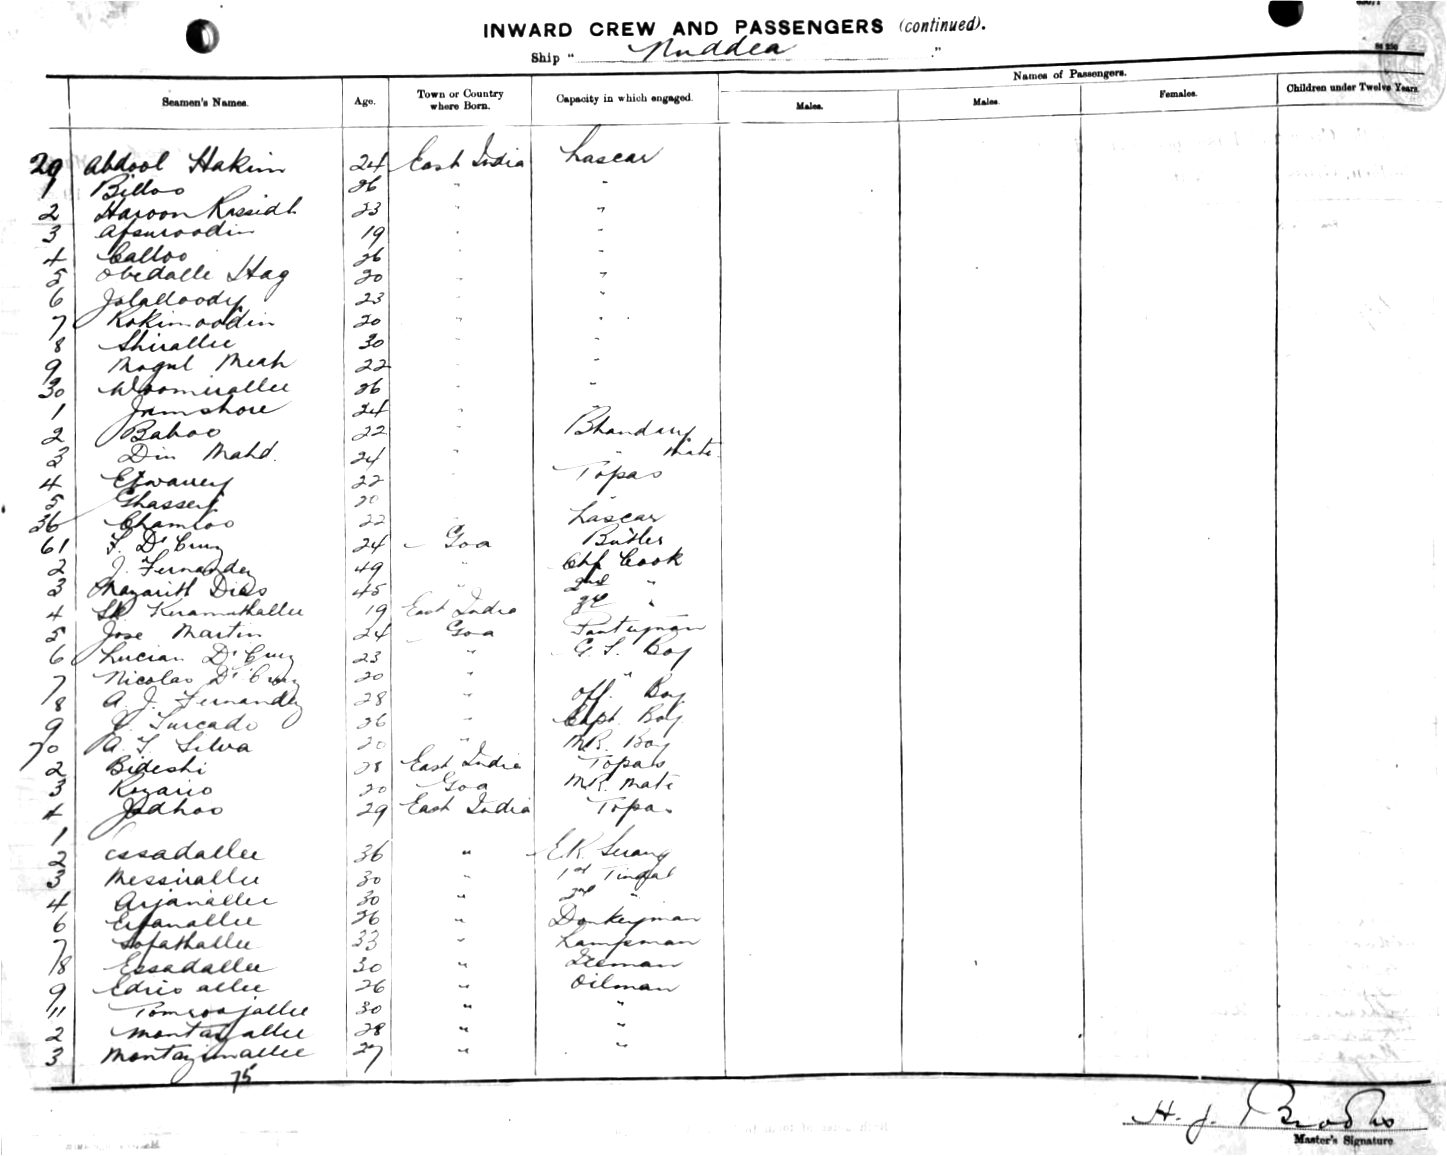 INWARD CREW AND PASSENGERS (continued).
Ship " Nuddea "
Seamen's Names. Age. Town or Country where Born. Capacity in which engaged. Names of Passengers.
Males. Males. Females. Children under Twelve Years.
20 Abdool Hakim 24 East India Lascar
1 Billoo 26 " "
2 Haroon Rassidl 23 " "
3 Afsuroodin 19 " "
4 Calloo 26 " "
5 Obedalle Hag 20 " "
6 Jolalloody 23 " "
7 Rokimoodin 20 " "
8 Shirallee 30 " "
9 Mogul Meah 22 " "
30 Woomirallee 26 " "
1 Jamshore 24 "
2 Baboo 22 " Bhandary
3 Din Mahd. 24 " " Mate
4 Etwarrey 22 " Topas
5 Ghasserf 20
36 Chamloo 22 " Lascar
61 F. D'Cruz 24 Goa Butler
2 J. Fernandez 49 " Chf Cook
3 Magarith Dias 45 " 2nd "
4 Sk Keramuthallee 19 East India 3d "
5 Jose Martin 24 Goa Pantryman
6 Lucian D'Cruz 23 " G. S. Boy
7 Nicolas D'Cruz 20 " "
8 A. J. Fernandez 28 " Off. Boy
9 Furcado 26 " Capt. Boy
70 A. F. Silva 20 " M.R. Boy
2 Bideshi 28 East India Topas
3 Rozario 20 Goa M.R. Mate
4 Jadhoo 29 East India Topas
1 Essadallee 36 " E.R. Serang
2
3 Messirallee 30 " 1st Tindal
4 Arjanallee 30 " 2nd "
6 Erfanallee 26 " Donkeyman
7 Sofathallee 33 " Lampsman
8 Essadallee 30 " Iceman
9 Edris allee 26 " Oilman
11 Tomroojallee 30 " "
2 Montazallee 28 " "
3 Montazimallee 27 " "
75
H. J. Brooks
Master's Signature